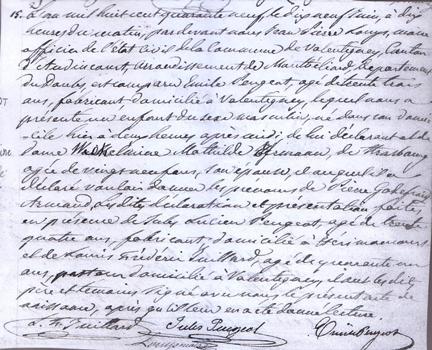 15. L'an mil huit cent quarante neuf le dix neuf Juin, à dix
heures du matin, pardevant nous Jean Pierre maire
officier de l'état civil de la Commune de Valentigney, Canton
d'Audincourt, Arrondissement de Montbéliard, Département
du Doubs, est comparu Emile Peugeot, agé de trente trois
ans, fabricant, domicilié à Valentigney, lequel nous a
présenté un enfant du sexe masculin, né dans son domi-
-cile hier à deux heures après midi, de lui déclarant et de
dame Wilhelmine Mathilde de Strasbourg
agée de vingt neuf ans, son épouse, et auquel il a
déclaré vouloir donner les prénoms de Pierre
Armand, lesdites déclaration et présentation faites,
en présence de Jules Lucien Peugeot, agé de trente
quatre ans, fabricant, domicilié à Hérimoncourt
et de Louis Frédéric Tuillard, agé de quarante un
ans, pasteur domicilié à Valentigney, et ont les dits
père et témoins signé avec nous le présent acte de
naissance, après qu'il leur en a été donné lecture.
Tuillard Jules Peugeot Emile Peugeot